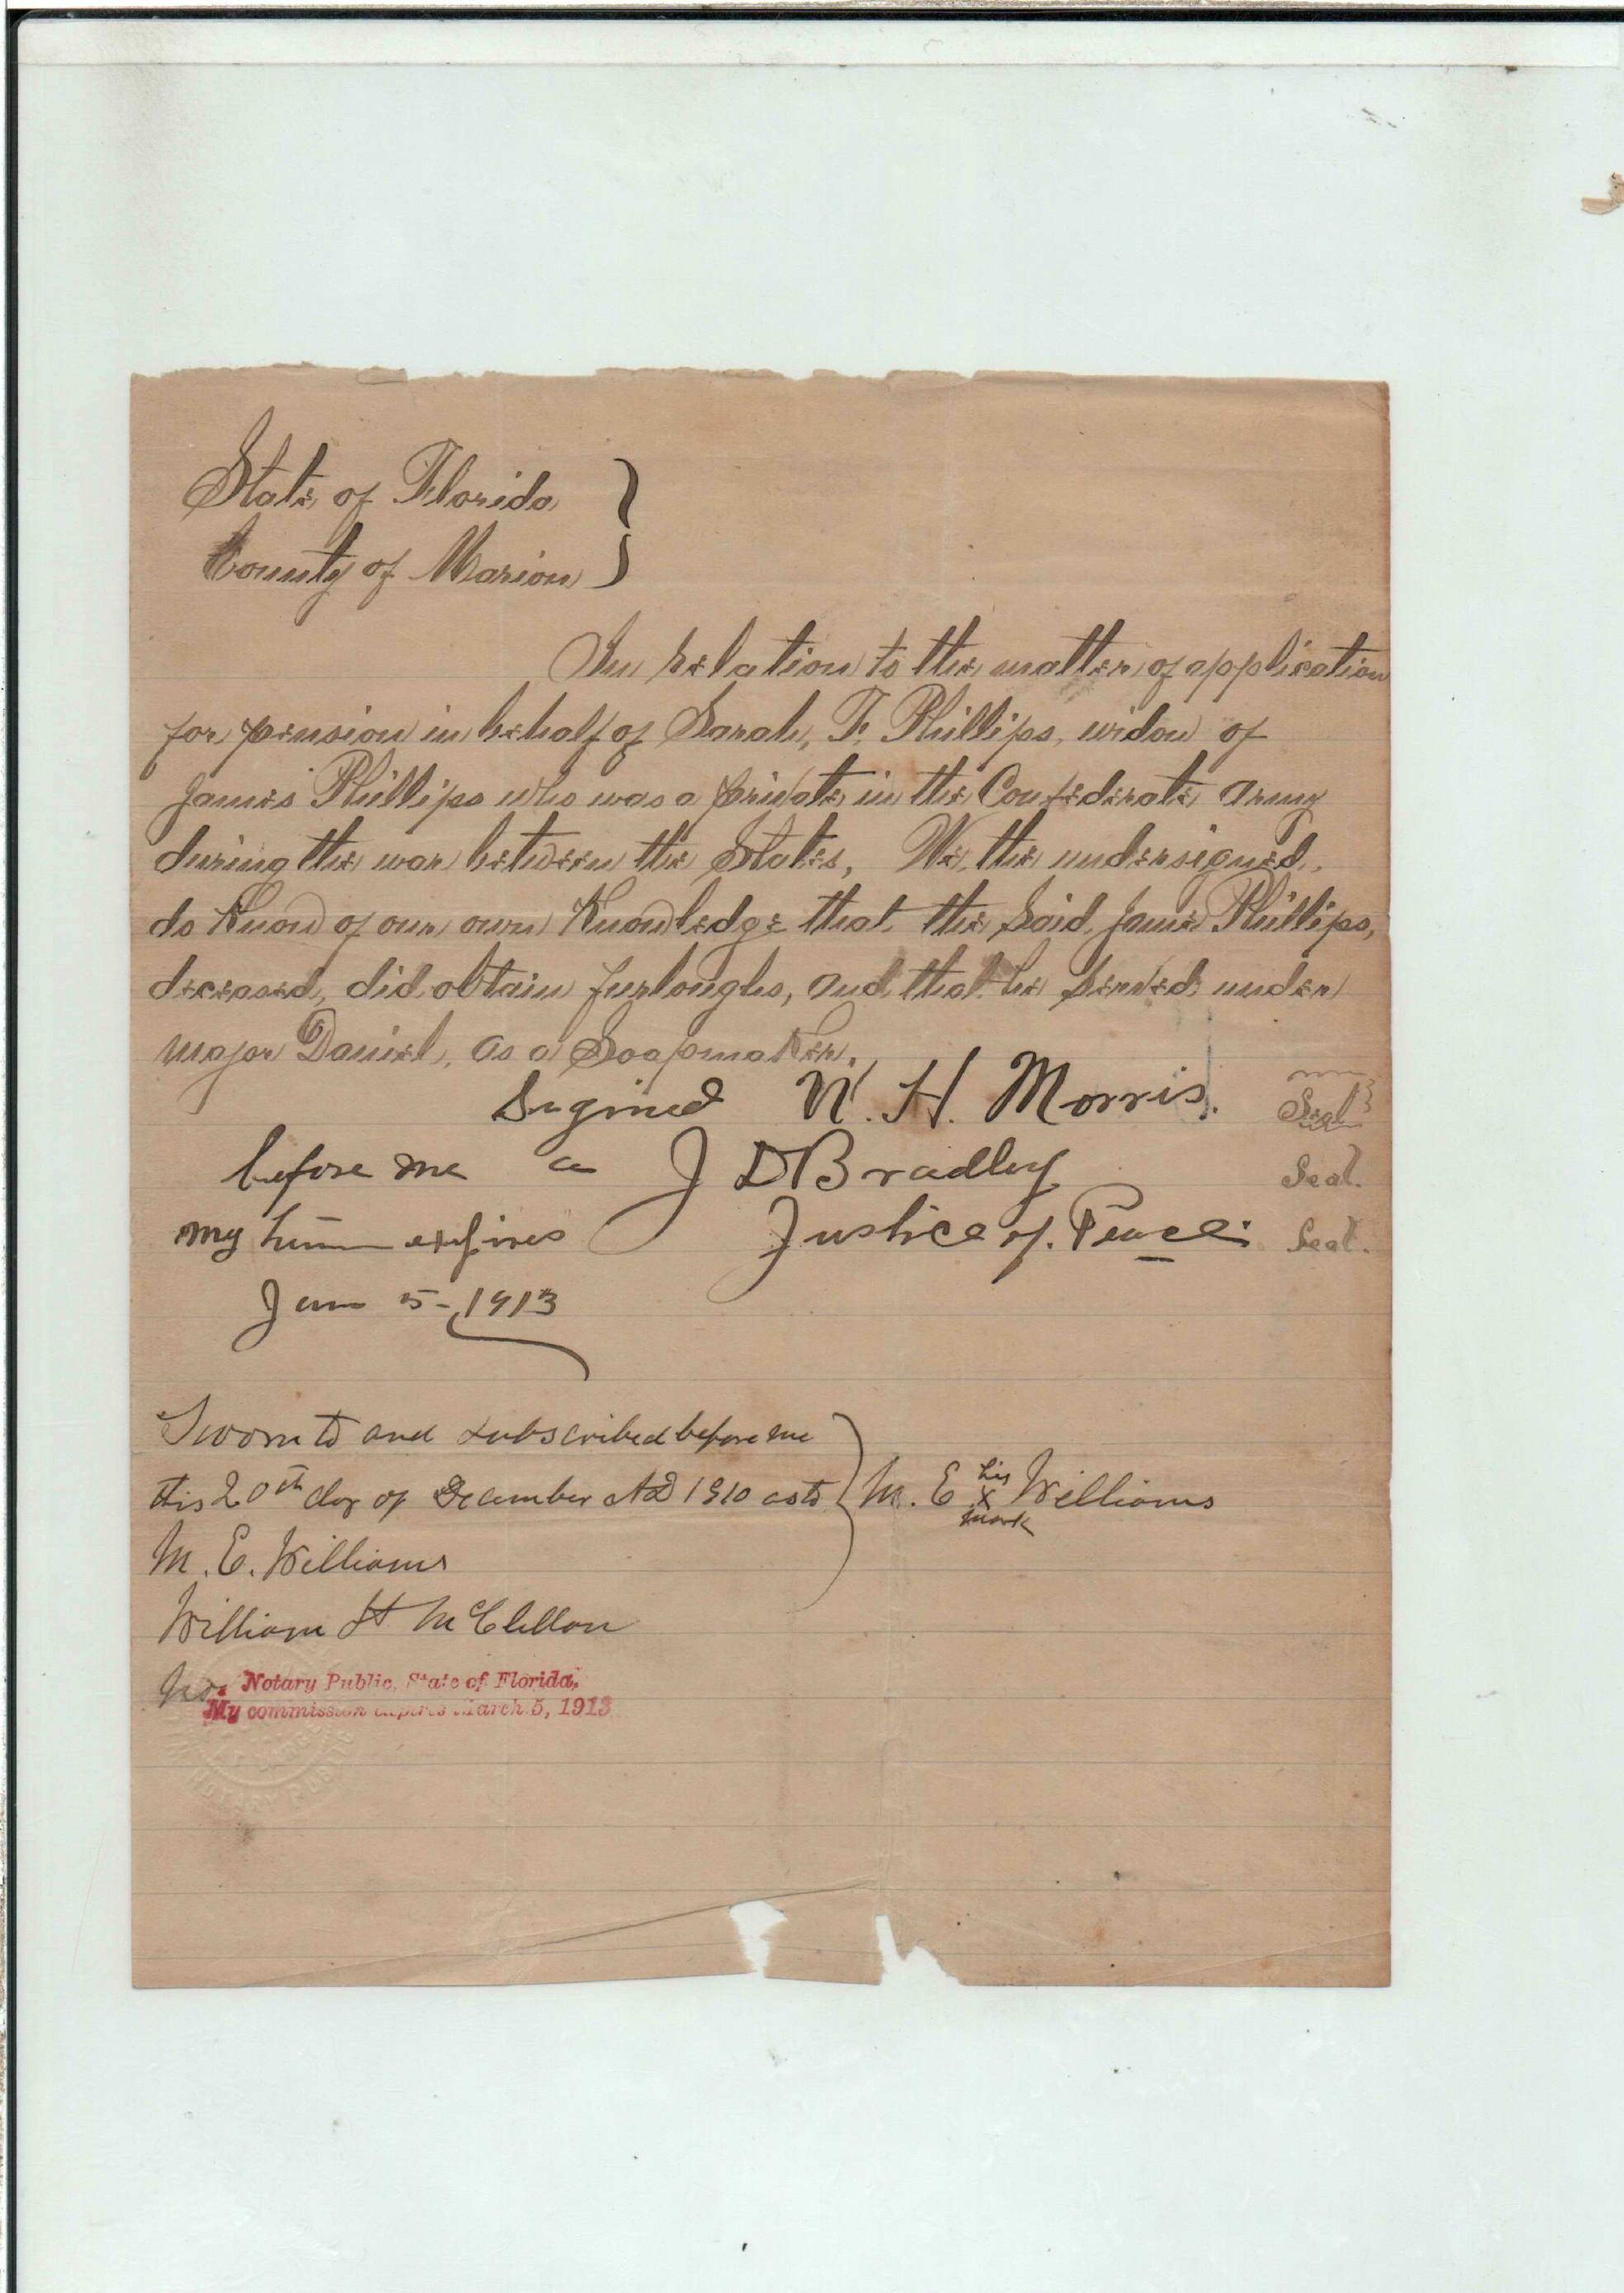 State of Florida }
County of Marion }
In relation to the matter of application
for pension in behalf of Sarah, F. Phillips, widow of
James Phillips who was a private in the Confederate Army
during the war between the States, We, the undersigned,
do Know of our own Knowledge that the said Jame Phillips,
deceased, did obtain furloughs, and that he served under
Major Daniel, as a Soapmaker.
Signed W. H. Morris. Seal
before me a J D Bradley Seal.
my expires Justice of. Peace. Seal.
Jan 5 - 1913
Sworn to and subscribed before me
this 20th day of December AD 1910 as to M. E his x mark Williams
M. E. Williams
William H McClellan
Notary Public, State of Florida,
My commission expires March 5, 1913
NOTARY PUBLIC